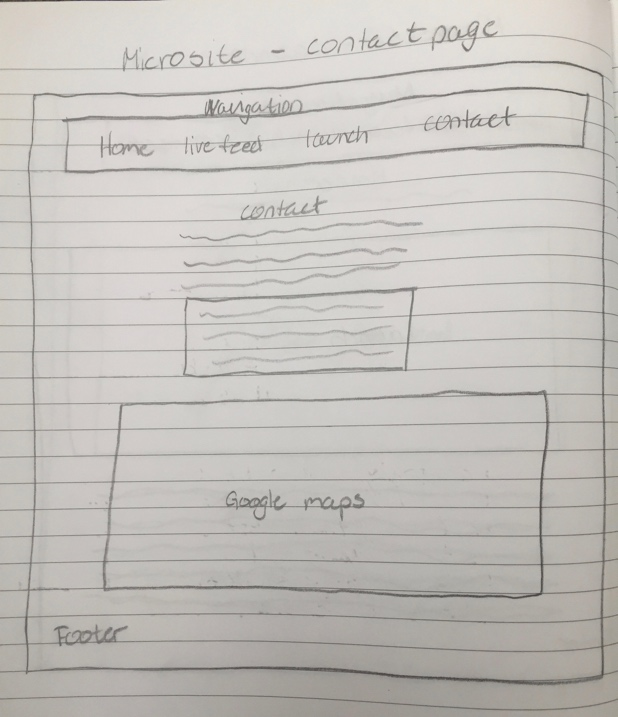 Microsite - contact page
Navigation
Home live feed launch contact
contact
Google maps
Footer